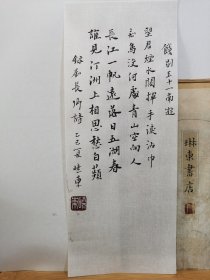 餞別王十一南遊
望君煙水闊揮手淚沾巾
飛鳥沒何處青山空向人
長江一帆遠落日五湖春
誰見汀洲上相思愁白蘋
錄劉長卿詩 乙亥夏
琳東書店